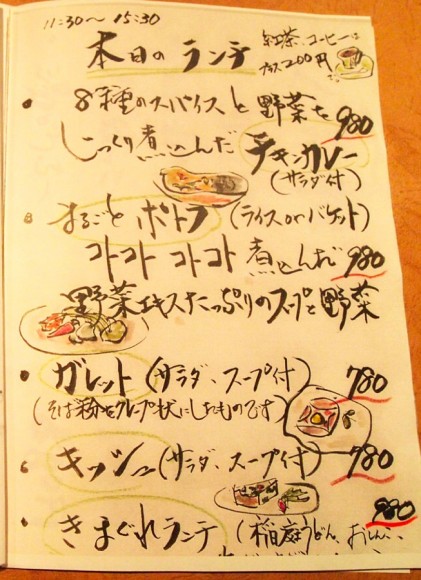 11:30〜15:30
本日のランチ
紅茶、コーヒーは
プラス200円
8種のスパイスと野菜を
じっくり煮込んだ
980
チキンカレー
(サラダ付)
まるごとポトフ(ライスorバゲット)
コトコトコトコト煮込んだ 980
野菜エキスたっぷりのスープと野菜
ガレット(サラダ、スープ付) 780
(そば粉をクレープ状にしたものです)
キッシュ(サラダ、スープ付) 780
980
きまぐれランチ(稲庭うどん、